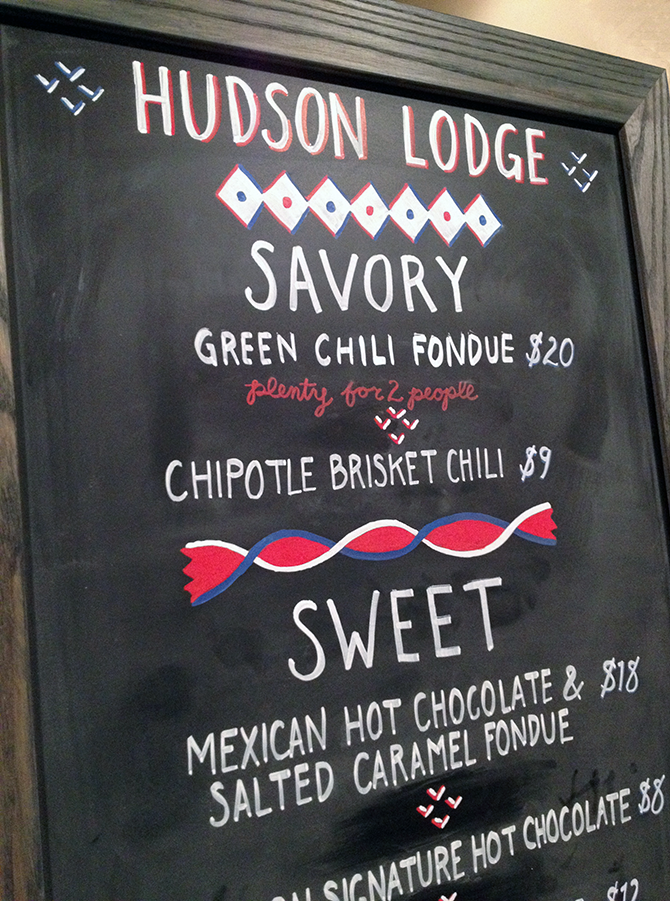 HUDSON LODGE
SAVORY
GREEN CHILI FONDUE $20
plenty for 2 people
CHIPOTLE BRISKET CHILI $9
SWEET
MEXICAN HOT CHOCOLATE & $18
SALTED CARAMEL FONDUE
SIGNATURE HOT CHOCOLATE $8
$12